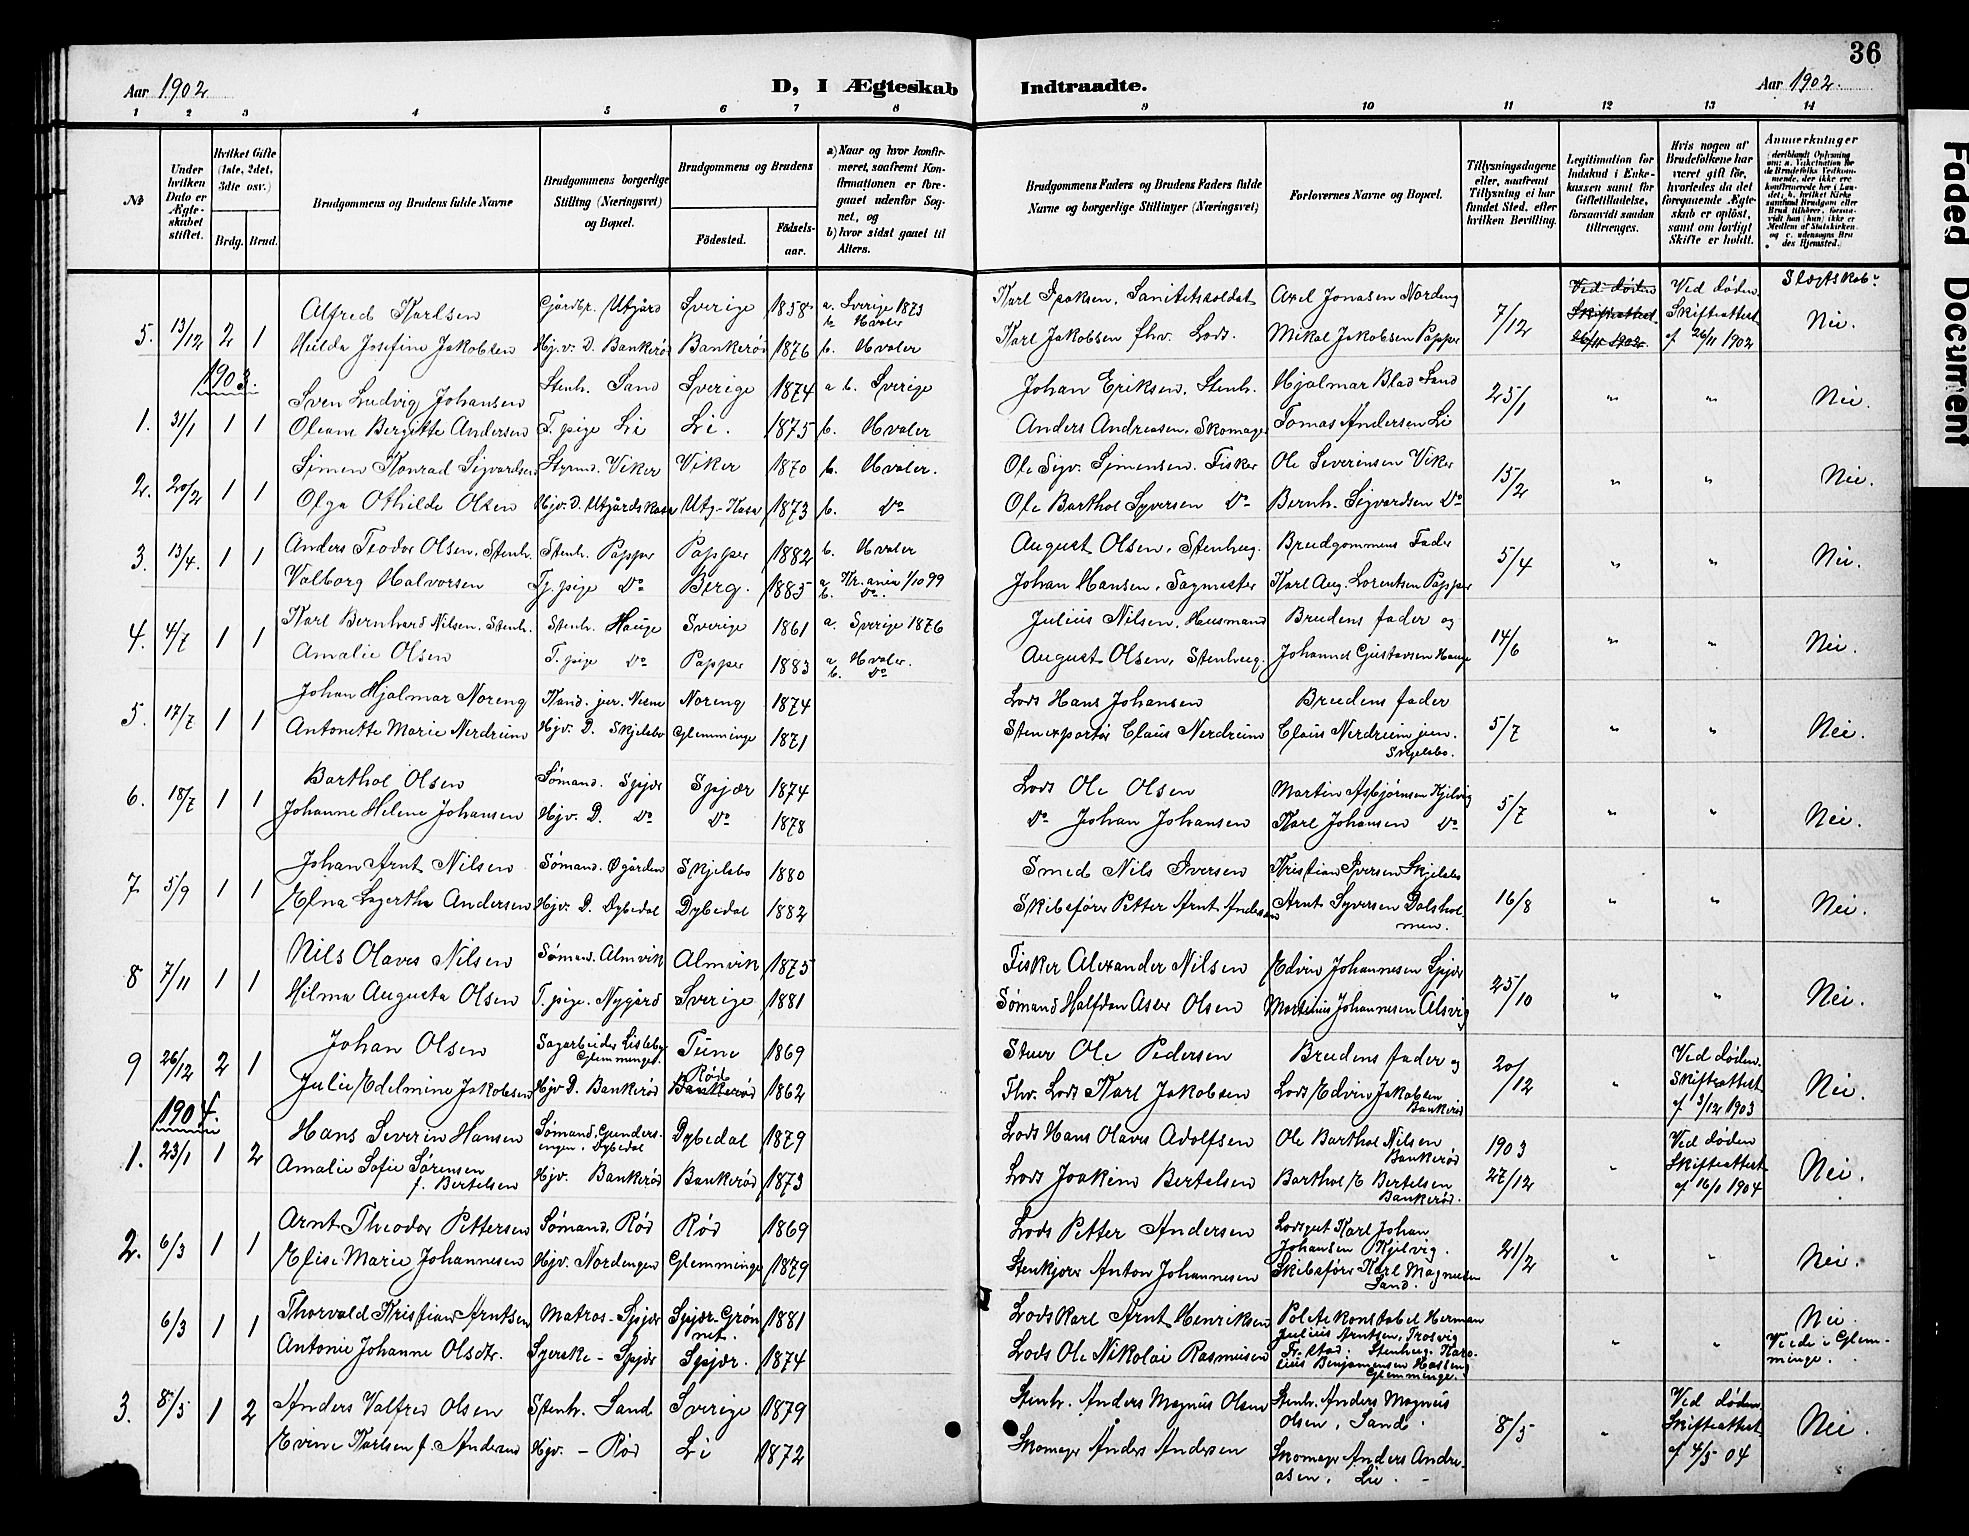 36
Aar 1902
D, I Ægteskab Indtraadte.
Aar 1902.
1 2 3 4 5 6 7 8 9 10 11 12 13 14
№
Under hvilken Dato er Ægteskabet stiftet.
Hvilket Gifte (1ste, 2det, 3die osv.)
Brdg. Brud.
Brudgommens og Brudens fulde Navne
Brudgommens borgerlige Stilling (Næringsvei) og Bopæl.
Brudgommens og Brudens
Fødested.
Fødselsaar.
a) Naar og hvor konfirmeret, saafremt Konfirmationen er foregaaet udenfor Sognet, og
b) hvor sidst gaaet til Alters.
Brudgommens Faders og Brudens Faders fulde Navne og borgerlige Stillinger (Næringsvei)
Forlovernes Navne og Bopæl.
Tillysningsdagene eller, saafremt Tillysning ei har fundet Sted, efter hvilken Bevilling.
Legitimation for Indskud i Enkekassen samt for Giftetilladelse, forsaavidt saadan tiltrænges.
Hvis nogen af Brudefolkene har været gift før, hvorledes da det foregaaende Ægteskab er opløst, samt om lovligt Skifte er holdt.
Anmerkninger
Slægtskab:
5. 13/12 2 1 Alfred Karlsen Gjårdbr. Utgård Sverige 1858 a. Sverige 1873 b. Hvaler Karl Isaksen, Sanitetsoldat Axel Jonasen Nordeng 7/12 Ved døden Skifteattest 26/11 1902 Ved døden Skifteattest af 26/11 1902 Nei.
Hulda Josefine Jakobsen Hj.v. D. Bankerød Bankerød 1876 b. Hvaler Karl Jakobsen fhv. Lods. Mikal Jakobsen Papper
1903.
1. 31/1 1 1 Sven Ludvig Johansen Stenh. Sand Sverige 1874 a b. Sverige Johan Eriksen, Stenh. Hjalmar Blad Sand 25/1 " " Nei.
Oleane Bergitte Andersen T. pige Li Li. 1875 b. Hvaler Anders Andreasen, Skomager Tomas Andersen Li
2. 20/2 1 1 Simen Konrad Sigvardsen Styrmd. Viker Viker 1870 b. Hvaler. Ole Sigv. Simensen. Fisker Ole Severinsen Viker 15/2 " " Nei.
Olga Othilde Olsen Hjv. D. Utgårdskasa Utg-Kasa 1873 b. Do Ole Barthol Syversen Do Bernh. Sigvardsen Do
3. 13/4. 1 1 Anders Teodor Olsen, Stenh. Stenh. Papper Papper 1882 b. Hvaler August Olsen, Stenhug. Brudgommens Fader 5/4 " " Nei.
Valborg Halvorsen Tj. pige Do Berg. 1885 a. Kr.ania 1/10 99 b. Do. Johan Hansen, Sagmester Karl Aug. Lorentsen Papper
4. 4/7 1 1 Karl Bernhard Nilsen, Stenh. Stenh. Hauge Sverige 1861 a. Sverige 1876 Julius Nilsen, Husmand Brudens fader og 14/6 " " Nei.
Amalie Olsen T. pige Do Papper 1883 a. Hvaler. b. Do August Olsen, Stenhug. Johannes Gustavsen Hauge
5. 17/7 1 1 Johan Hjalmar Noreng Kand. jur. Noreng 1874 Lods Hans Johansen Brudens fader 5/7 " " Nei.
Antonette Marie Nerdrum Hjv. D. Skjelsbo Glemminge 1871 Stenexportør Claus Nerdrum Claus Nerdrum jun. Skjelsbo.
6. 18/7 1 1 Barthol Olsen Sømand. Spjær Spjær 1874 Lods Ole Olsen Martin Asbjørnsen Kjelvig 5/7 " " Nei.
Johanne Helene Johansen Hjv. D. Do Do 1878 Do Johan Johansen Karl Johansen Do
7. 5/9 1 1 Johan Arnt Nilsen Sømand. Øgården Skjelsbo 1880 Smed Nils Iversen Kristian Iversen Skjelsbo 16/8 " " Nei.
Elna Lagertha Andersen Hjv. D. Dybedal Dybedal 1882 Skibsfører Petter Arnt Andersen Arnt Syversen Dalsholmen.
8 7/11 1 1 Nils Olaves Nilsen Sømand. Almvik Almvik 1875 Fisker Alexander Nilsen Edvin Johannesen Spjær 25/10 " " Nei.
Hilma Augusta Olsen T. pige. Nygård Sverige 1881 Sømand Halfdan Aser Olsen Martinius Johannesen Alsvig
9 26/12 2 1 Johan Olsen Sagarbeider Lisleby Glemminge. Tune 1869 Stuer Ole Pedersen Brudens fader og 20/12 " Ved døden. Skifteattest af 3/12 1903 Nei.
Julie Edelmine Jakobsen Hjv D. Bankerød Rød Bankerød 1862 Fhv. Lods Karl Jakobsen Lods Edvin Jakobsen Bankerød
1904.
1. 23/1 1 2 Hans Severin Hansen Sømand, Gundersengen. Dybedal Dybedal 1879 Lods Hans Olaves Adolfsen Ole Barthol Nilsen Bankerød 1903 27/12 " Ved døden Skifteattest af 16/1 1904 Nei.
Amalie Sofie Sørensen f. Bertelsen Hjv. Bankerød Bankerød 1873 Lods Joakim Bertelsen Barthol E Bertelsen Bankerød.
2. 6/3 1 1 Arnt Theodor Pettersen Sømand, Rød Rød 1869 Lods Petter Andersen Lodsgut Karl Johan Johansen Kjelvig. 21/2 " " Nei.
Elise Marie Johannesen Hjv. Nordengen Glemminge 1879 Stenkjører Anton Johannesen Skibsfører Karl Magnusen Sand.
6/3 1 1 Thorvald Kristian Arntsen Matros - Spjær Spjær-Grønnet. 1881 Lods Karl Arnt Henriksen Politekonstabel Herman Julius Arntsen, Trosvig Fr.stad. " " Nei. Viede i Glemminge.
Antonie Johanne Olsdtr. Syerske - Spjær Spjær. 1874 Lods Ole Nikolai Rasmussen Stenhug. Karolius Benjamensen Hasseng Glemminge.
3. 8/5 1 2 Anders Valfred Olsen Stenh. Sand Sverige 1879 Stenh. Anders Magnus Olsen Stenh. Anders Magnus Olsen, Sand. 8/5 " Ved døden. Skifteattest af 4/5 04 Nei.
Evine Karlsen f. Andersen Hjv. - Rød Li 1872 Skomager Anders Andersen Skomager Anders Andreasen, Lie. -
Faded Document